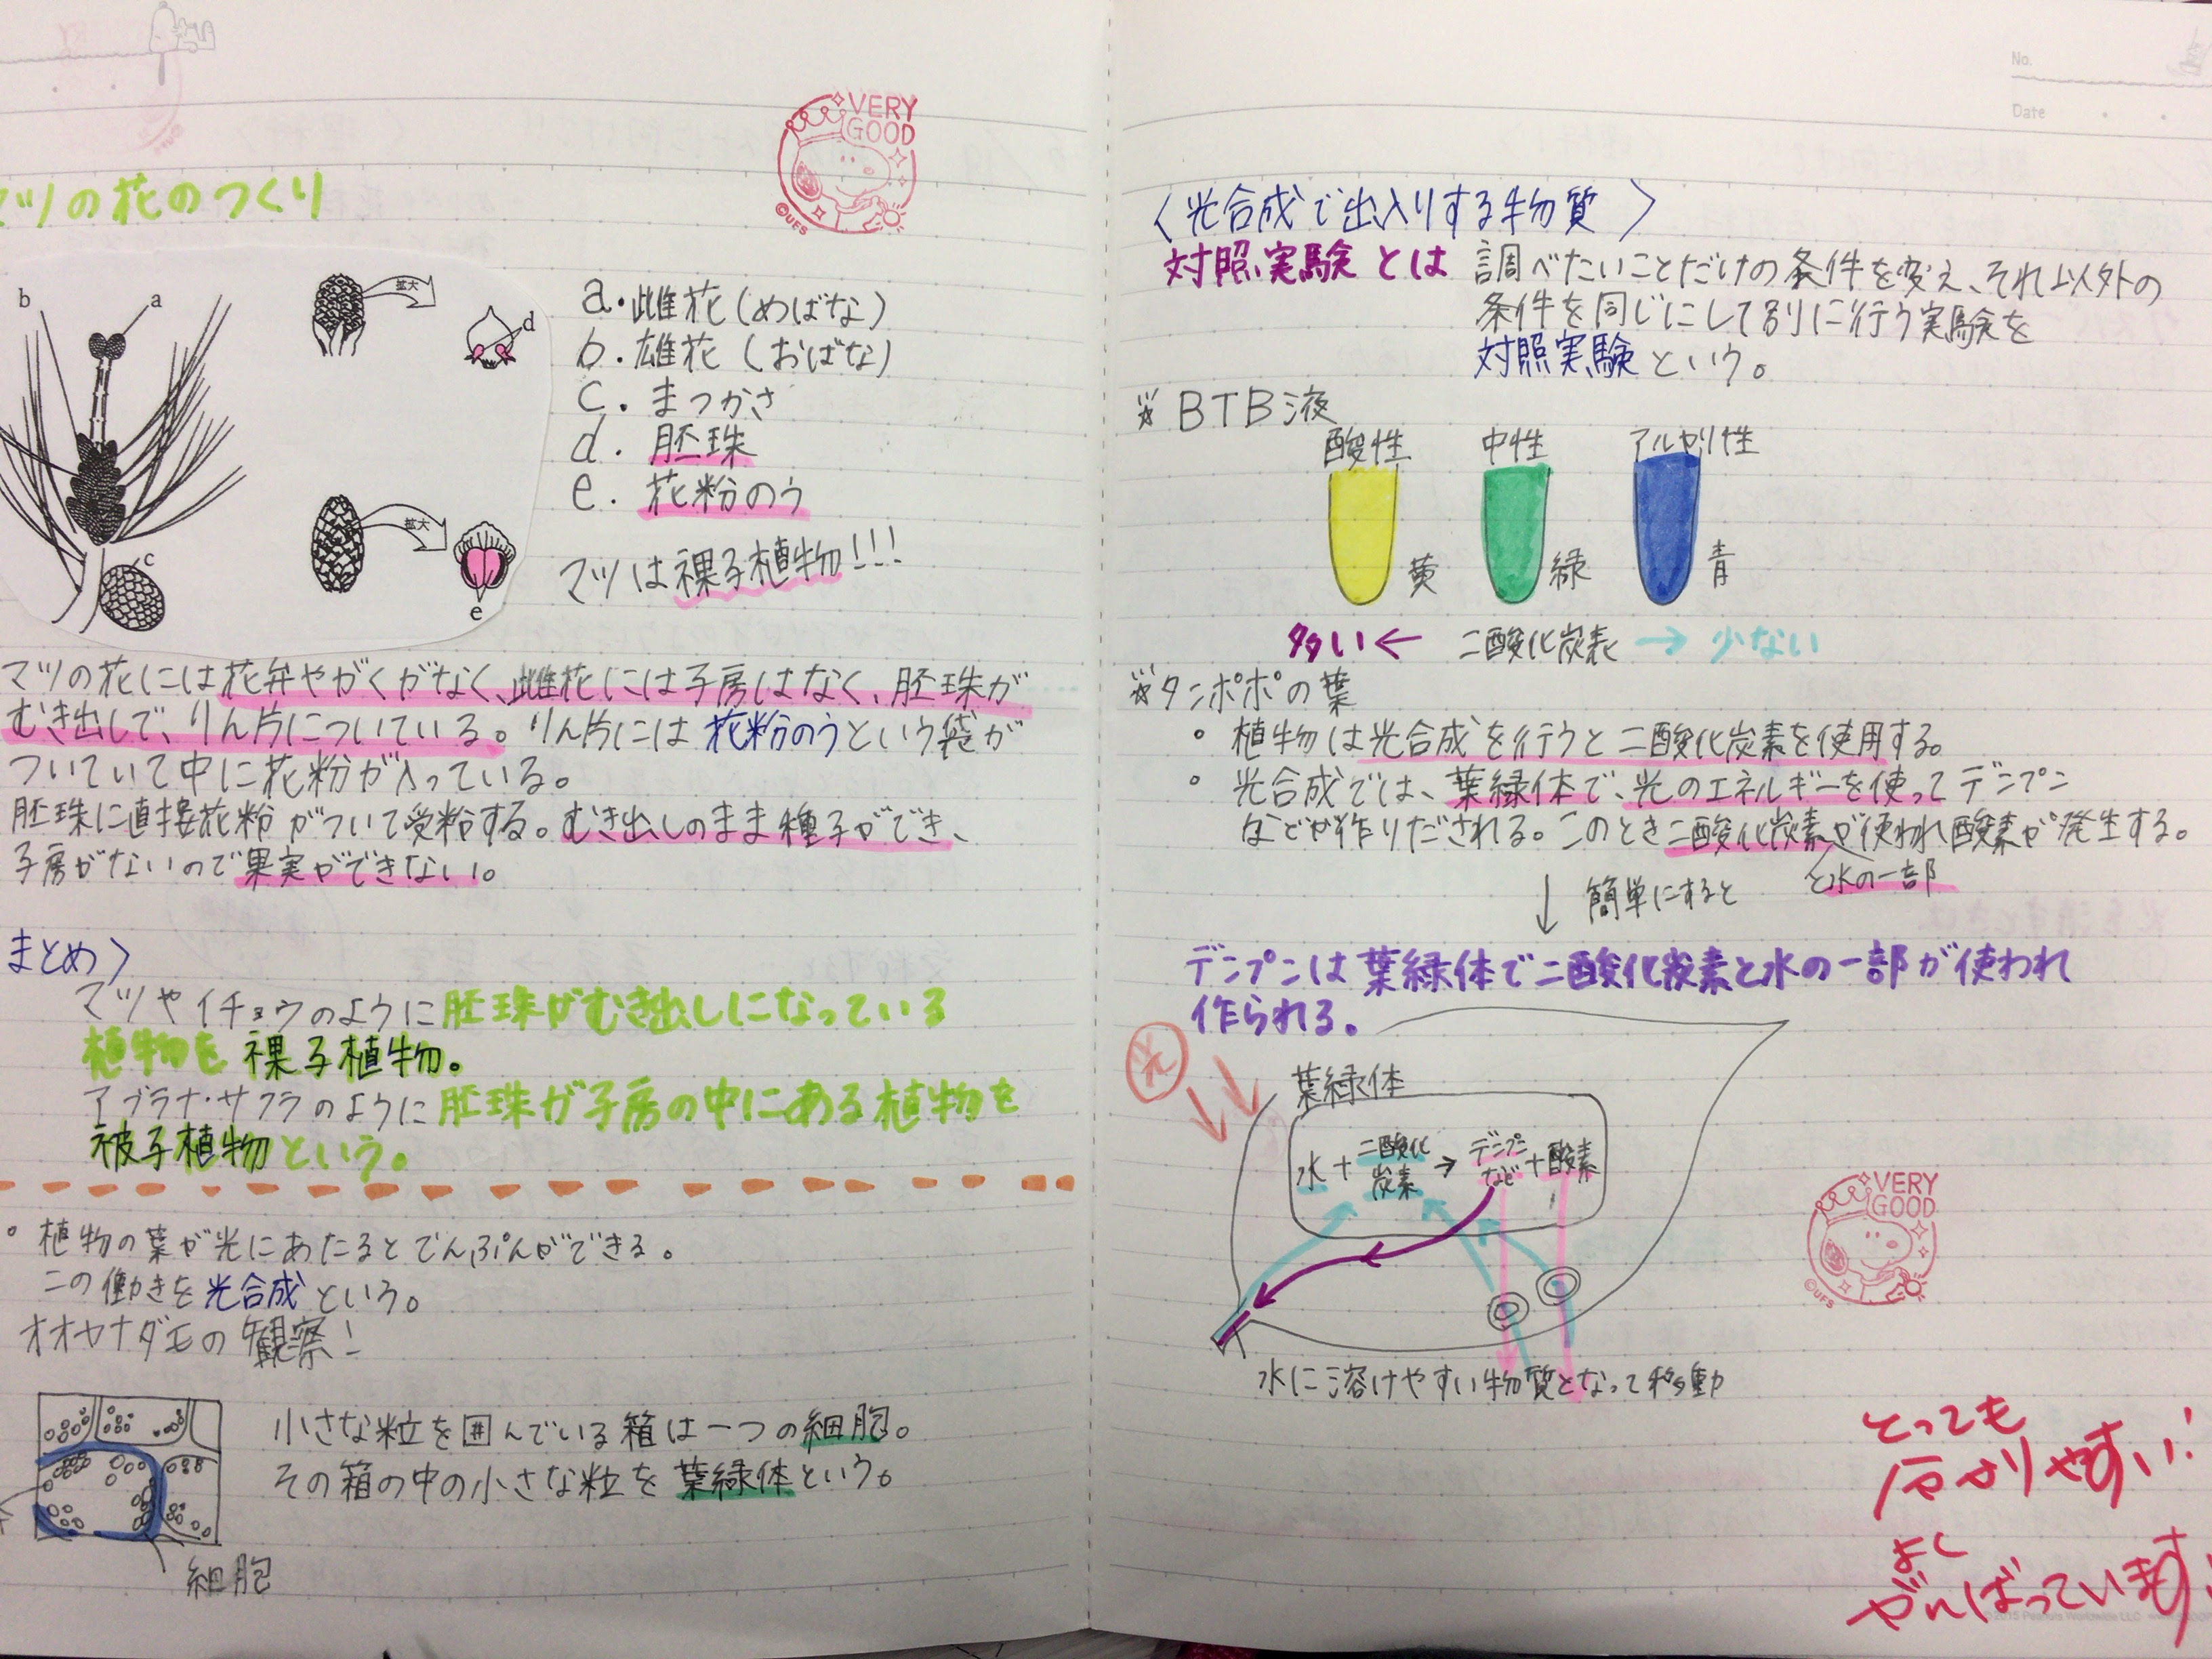 VERY
GOOD
©UFS
マツの花のつくり
b
a
拡大
d
c
拡大
e
a・雌花(めばな)
b.雄花(おばな)
c.まつかさ
d.胚珠
e.花粉のう
マツは裸子植物!!!
マツの花には花弁やがくがなく、雌花には子房はなく、胚珠が
むき出しで、りん片についている。りん片には花粉のうという袋が
ついていて中に花粉が入っている。
胚珠に直接花粉がついて受粉する。むき出しのまま種子ができ、
子房がないので果実ができない。
まとめ〉
マツやイチョウのように胚珠がむき出しになっている
植物を裸子植物。
アブラナ・サクラのように胚珠が子房の中にある植物を
被子植物という。
・植物の葉が光にあたるとでんぷんができる。
この働きを光合成という。
オオカナダモの観察!
小さな粒を囲んでいる箱は一つの細胞。
その箱の中の小さな粒を葉緑体という。
細胞
No.
Date
〈光合成で出入りする物質〉
対照実験とは 調べたいことだけの条件を変え、それ以外の
条件を同じにして別に行う実験を
対照実験という。
☆BTB液
酸性 中性 アルカリ性
黄 緑 青
多い← 二酸化炭素 → 少ない
☆タンポポの葉
・植物は光合成を行うと二酸化炭素を使用する。
・光合成では、葉緑体で、光のエネルギーを使ってデンプン
などが作りだされる。このとき二酸化炭素が使われ酸素が発生する。
と水の一部
↓ 簡単にすると
デンプンは葉緑体で二酸化炭素と水の一部が使われ
作られる。
光
葉緑体
水+二酸化炭素→デンプンなど+酸素
水に溶けやすい物質となって移動
VERY
GOOD
©UFS
とっても
分かりやすい!
よく
がんばっています!
©2015 Peanuts Worldwide LLC